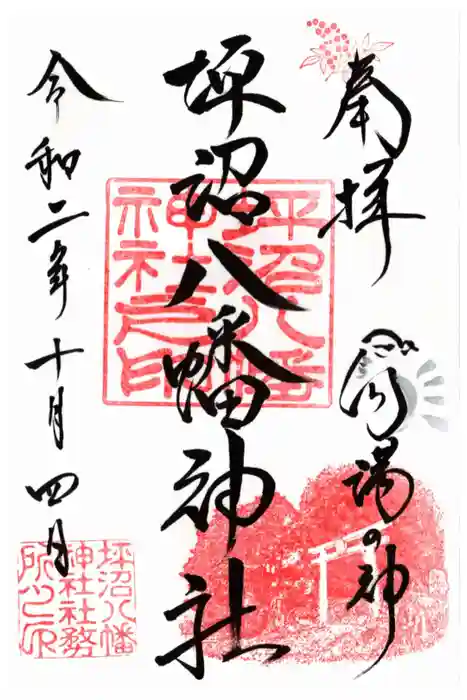 奉拝
の神
坪沼八幡神社
令和二年十月四日
坪沼八幡
神社之印
坪沼八幡
神社社務
所之印